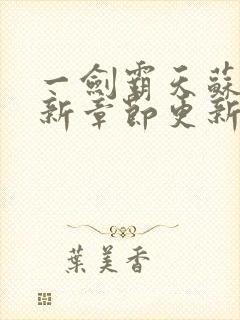 一劍霸天蘇
新章節更新
葉美香